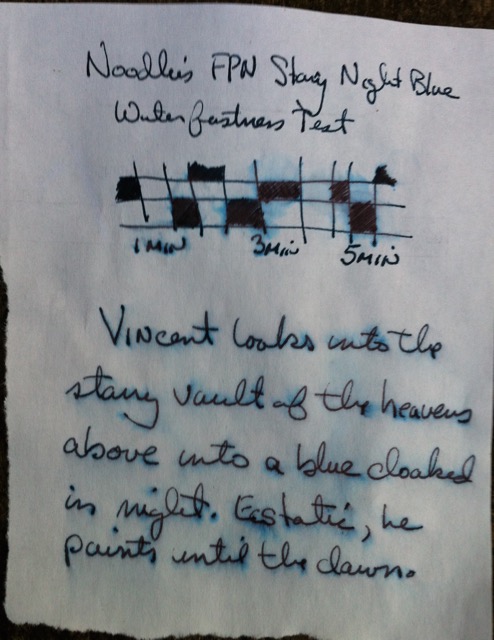 Noodler's FPN Starry Night Blue
Waterfastness Test
1 MIN 3 MIN 5 MIN
Vincent looks into the
starry vault of the heavens
above into a blue cloaked
in night. Ecstatic, he
paints until the dawn.